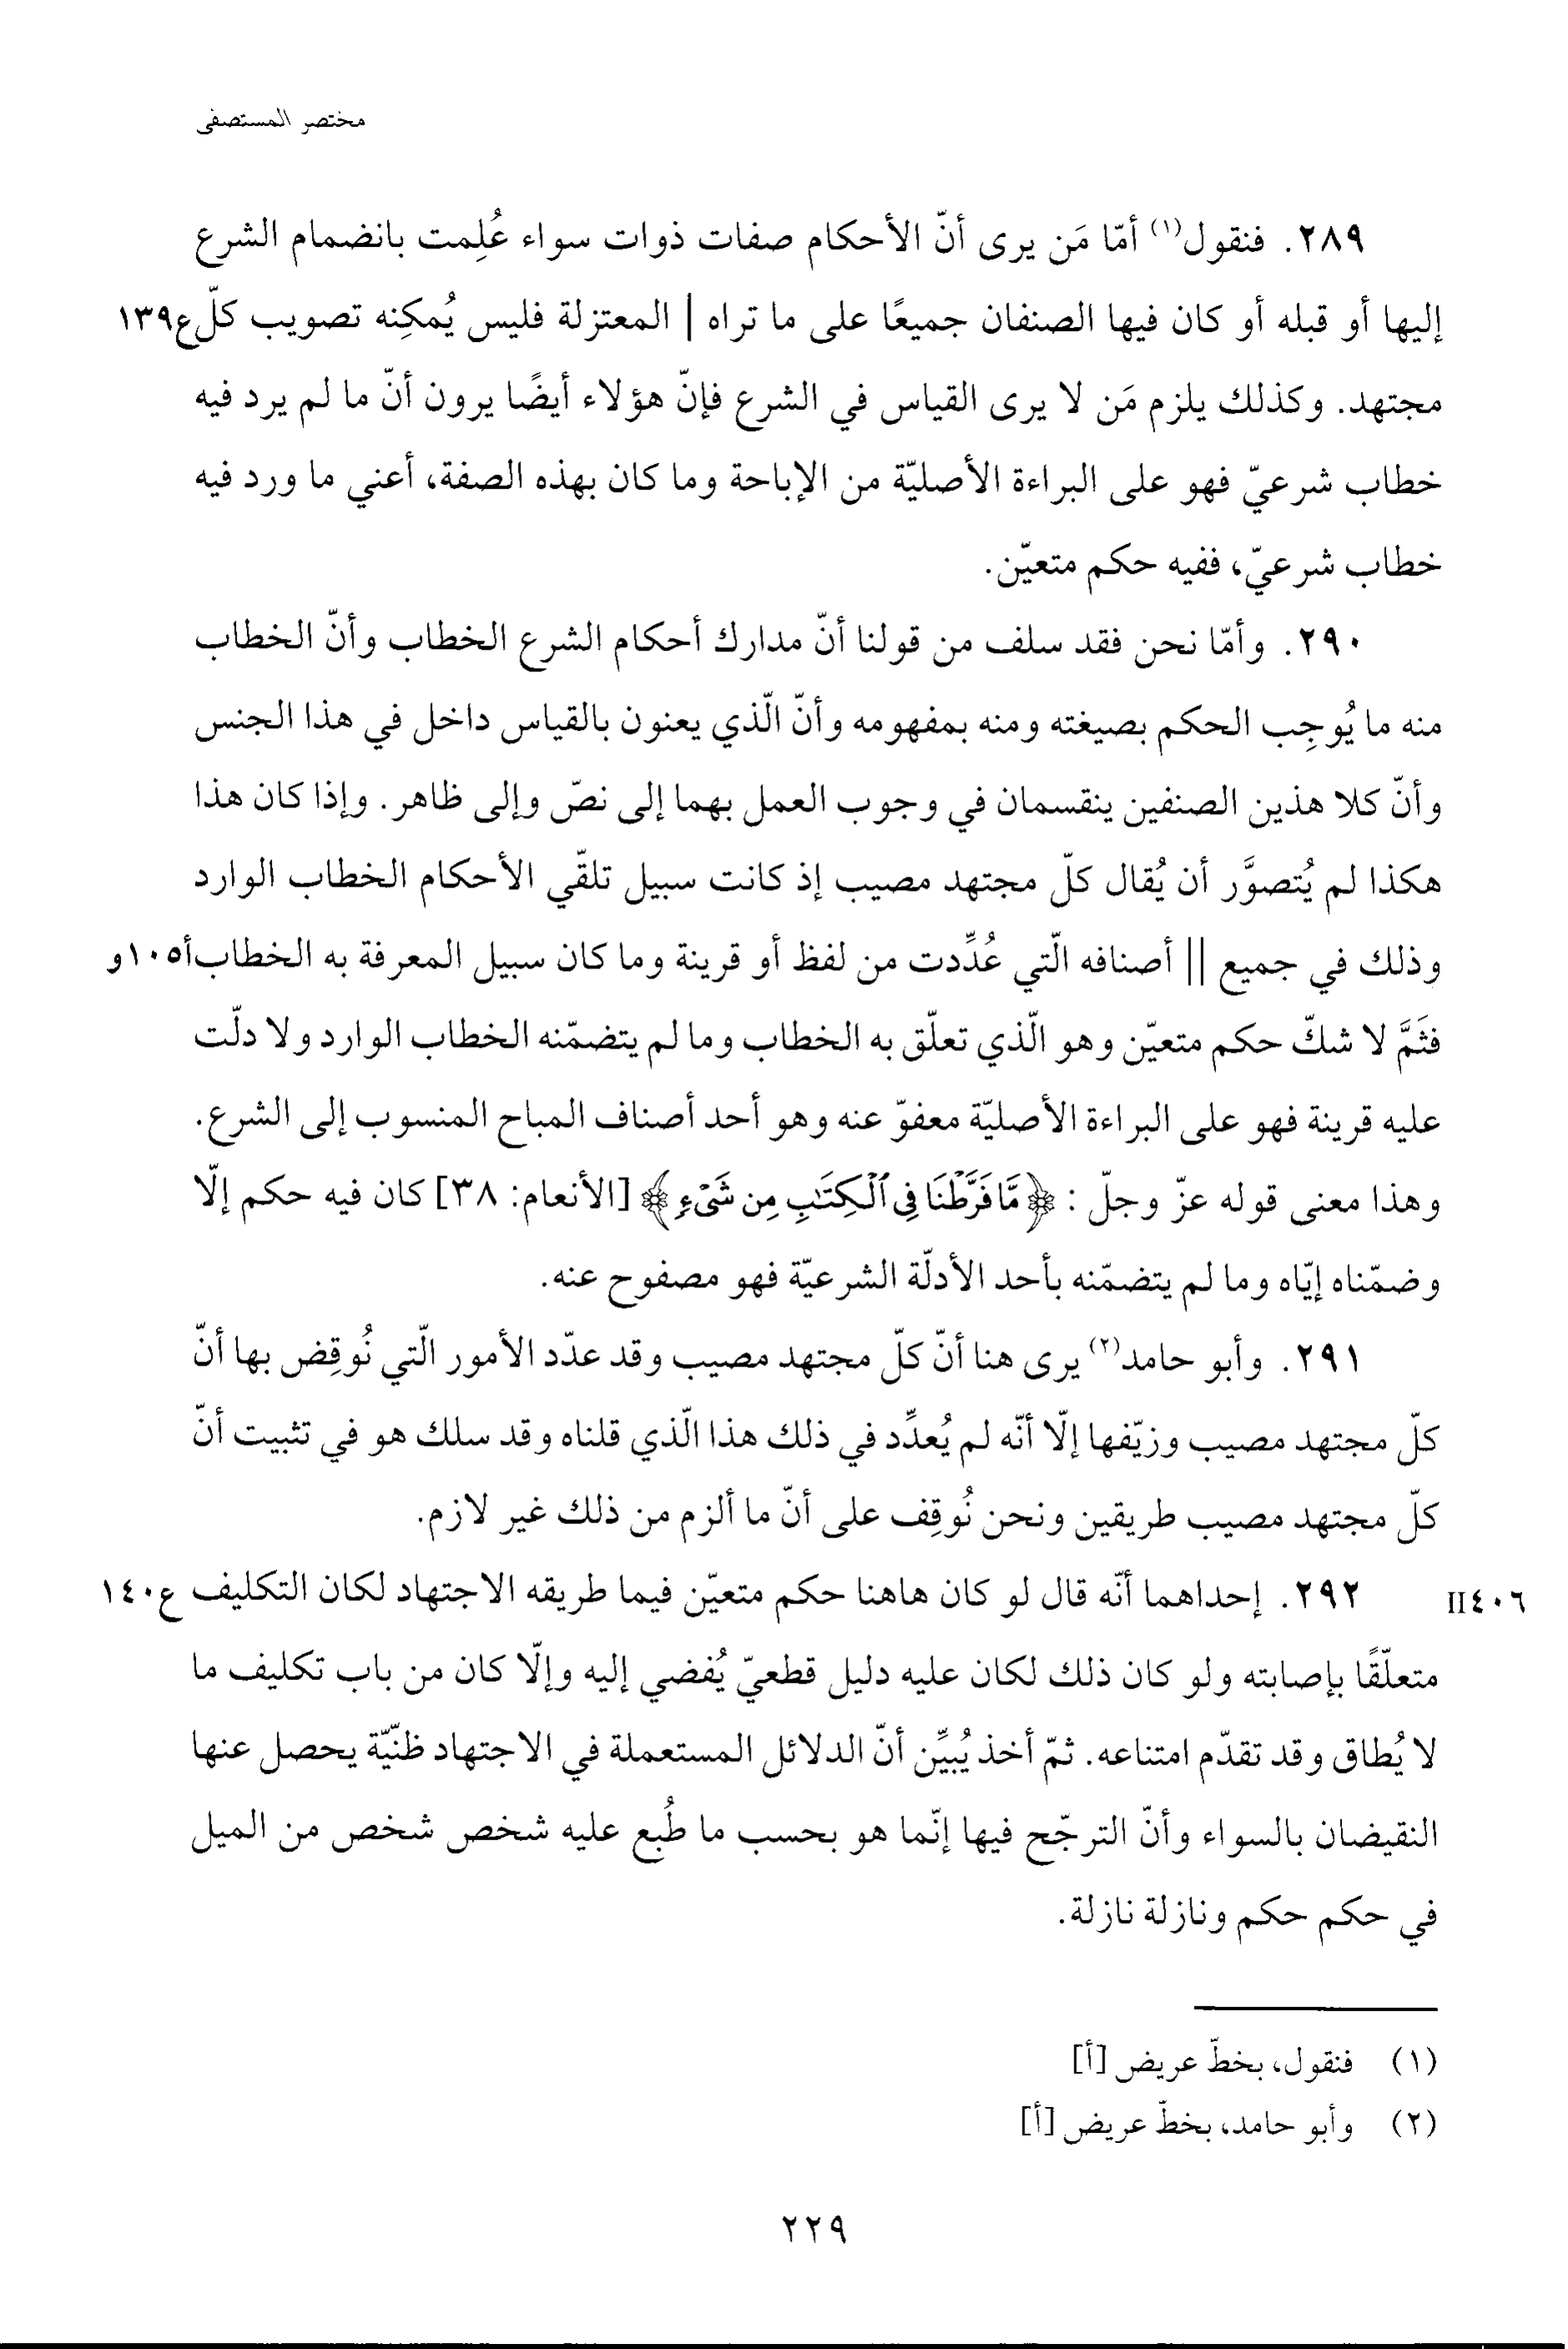 مختصر المستصفى
٢٨٩. فنقول(١) أمّا مَن يرى أنّ الأحكام صفات ذوات سواء عُلِمت بانضمام الشرع
إليها أو قبله أو كان فيها الصنفان جميعًا على ما تراه | المعتزلة فليس يُمكِنه تصويب كلّ ع١٣٩
مجتهد. وكذلك يلزم مَن لا يرى القياس في الشرع فإنّ هؤلاء أيضًا يرون أنّ ما لم يرد فيه
خطاب شرعيّ فهو على البراءة الأصليّة من الإباحة وما كان بهذه الصفة، أعني ما ورد فيه
خطاب شرعيّ، ففيه حكم متعيّن.
٢٩٠. وأمّا نحن فقد سلف من قولنا أنّ مدارك أحكام الشرع الخطاب وأنّ الخطاب
منه ما يُوجِب الحكم بصيغته ومنه بمفهومه وأنّ الّذي يعنون بالقياس داخل في هذا الجنس
وأنّ كلا هذين الصنفين ينقسمان في وجوب العمل بهما إلى نصّ وإلى ظاهر. وإذا كان هذا
هكذا لم يُتصوَّر أن يُقال كلّ مجتهد مصيب إذ كانت سبيل تلقّي الأحكام الخطاب الوارد
وذلك في جميع || أصنافه الّتي عُدِّدت من لفظ أو قرينة وما كان سبيل المعرفة به الخطاب أ١٠٥و
فثَمَّ لا شكّ حكم متعيّن وهو الّذي تعلّق به الخطاب وما لم يتضمّنه الخطاب الوارد ولا دلّت
عليه قرينة فهو على البراءة الأصليّة معفوّ عنه وهو أحد أصناف المباح المنسوب إلى الشرع.
وهذا معنى قوله عزّ وجلّ: ﴿مَّا فَرَّطْنَا فِي ٱلْكِتَٰبِ مِن شَيْءٍ﴾ [الأنعام: ٣٨] كان فيه حكم إلّا
وضمّناه إيّاه وما لم يتضمّنه بأحد الأدلّة الشرعيّة فهو مصفوح عنه.
٢٩١. وأبو حامد(٢) يرى هنا أنّ كلّ مجتهد مصيب وقد عدّد الأمور الّتي نُوقِض بها أنّ
كلّ مجتهد مصيب وزيّفها إلّا أنّه لم يُعدِّد في ذلك هذا الّذي قلناه وقد سلك هو في تثبيت أنّ
كلّ مجتهد مصيب طريقين ونحن نُوقِف على أنّ ما ألزم من ذلك غير لازم.
II٤٠٦ ٢٩٢. إحداهما أنّه قال لو كان هاهنا حكم متعيّن فيما طريقه الاجتهاد لكان التكليف ع١٤٠
متعلّقًا بإصابته ولو كان ذلك لكان عليه دليل قطعيّ يُفضي إليه وإلّا كان من باب تكليف ما
لا يُطاق وقد تقدّم امتناعه. ثمّ أخذ يُبيِّن أنّ الدلائل المستعملة في الاجتهاد ظنّيّة يحصل عنها
النقيضان بالسواء وأنّ الترجّح فيها إنّما هو بحسب ما طُبع عليه شخص شخص من الميل
في حكم حكم ونازلة نازلة.
(١) فنقول، بخطّ عريض [أ]
(٢) وأبو حامد، بخطّ عريض [أ]
٢٢٩